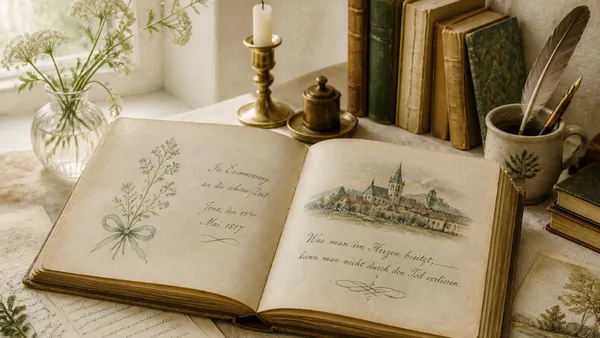 In Erinnerung
an die schöne Zeit
Jena, den 18ten
Mai 1817
Was man im Herzen besitzt,
kann man nicht durch den Tod verlieren.